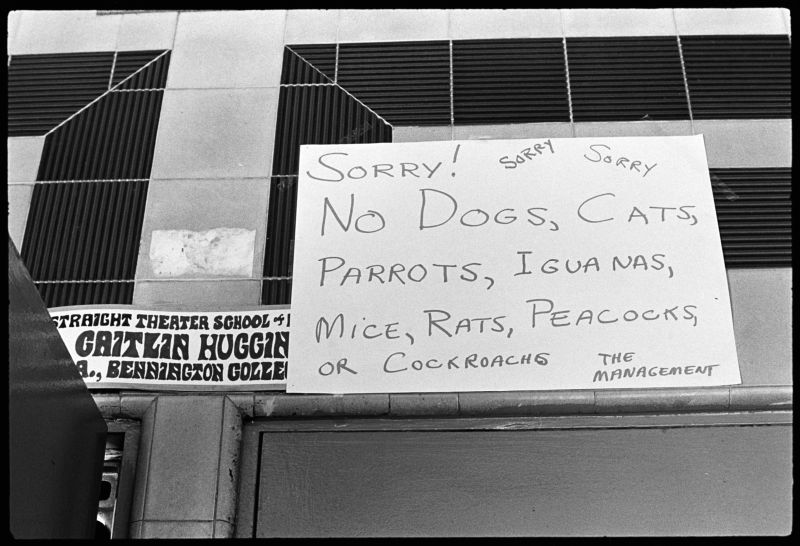 SORRY! SORRY SORRY
NO DOGS, CATS,
PARROTS, IGUANAS,
MICE, RATS, PEACOCKS,
OR COCKROACHS THE MANAGEMENT
STRAIGHT THEATER SCHOOL OF
CAITLIN HUGGIN
A., BENNINGTON COLLE